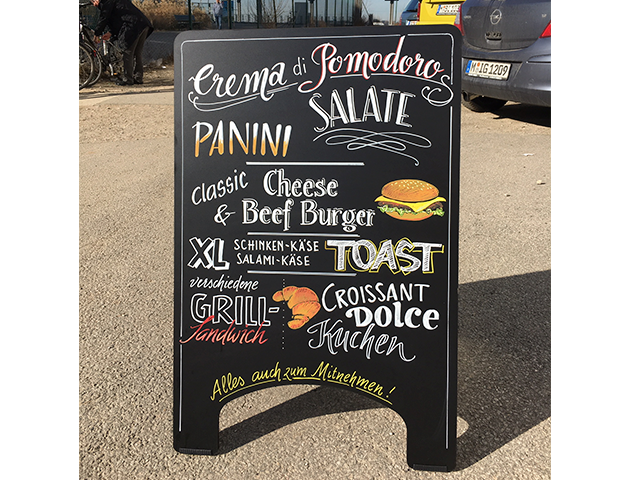 Crema di Pomodoro
SALATE
PANINI
Classic Cheese
& Beef Burger
XL SCHINKEN-KÄSE TOAST
SALAMI-KÄSE
verschiedene
GRILL-
Sandwich
CROISSANT
DOLCE
Kuchen
Alles auch zum Mitnehmen!
M IG1209